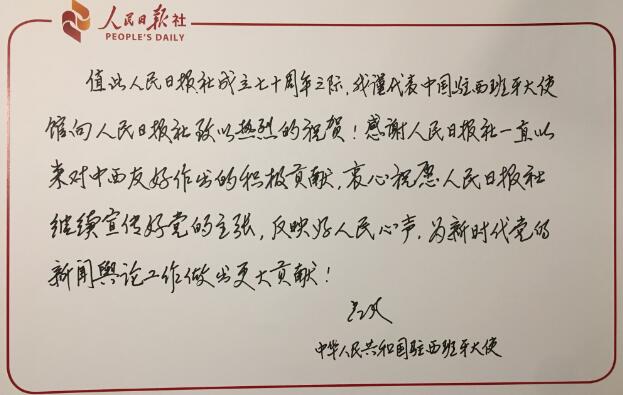 人民日报社
PEOPLE'S DAILY
值此人民日报社成立七十周年之际，我谨代表中国驻西班牙大使
馆向人民日报社致以热烈的祝贺！感谢人民日报社一直以
来对中西友好作出的积极贡献，衷心祝愿人民日报社
继续宣传好党的主张，反映好人民心声，为新时代党的
新闻舆论工作做出更大贡献！
中华人民共和国驻西班牙大使